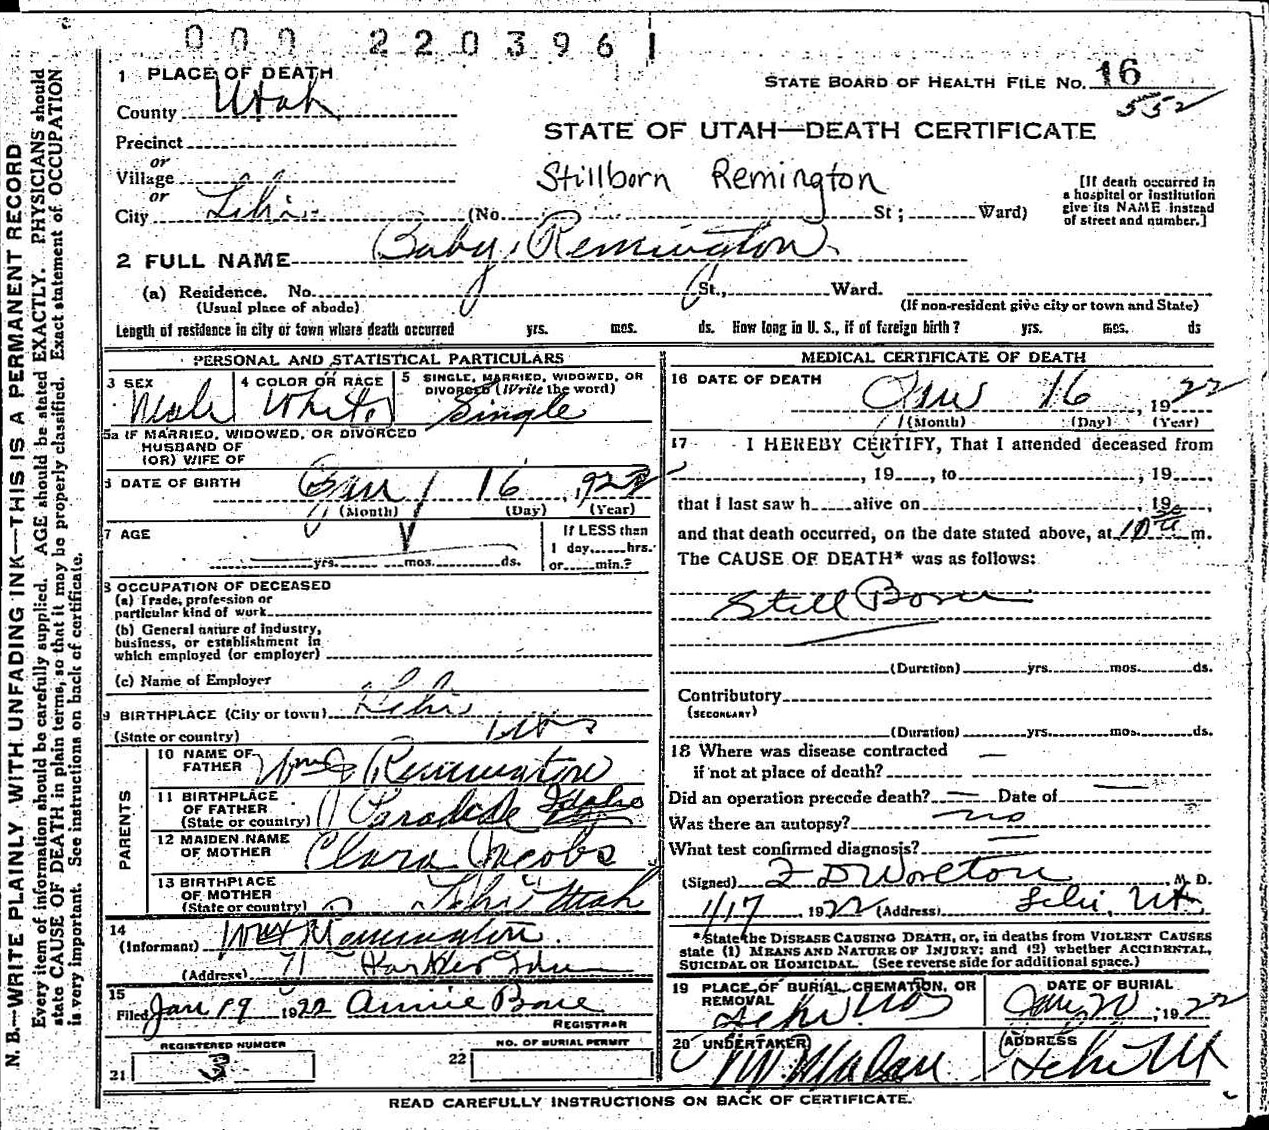 000 220396 1
1 PLACE OF DEATH
STATE BOARD OF HEALTH FILE NO. 16
County Utah
552
STATE OF UTAH—DEATH CERTIFICATE
Precinct
or
Village
Stillborn Remington
or
City Lehi (No. St; Ward)
[If death occurred in a hospital or institution give its NAME instead of street and number.]
2 FULL NAME Baby Remington
(a) Residence. No. St., Ward.
(Usual place of abode) (If non-resident give city or town and State)
Length of residence in city or town where death occurred yrs. mos. ds. How long in U. S., if of foreign birth? yrs. mos. ds
PERSONAL AND STATISTICAL PARTICULARS
3 SEX Male
4 COLOR OR RACE White
5 SINGLE, MARRIED, WIDOWED, OR DIVORCED (Write the word) Single
5a IF MARRIED, WIDOWED, OR DIVORCED
HUSBAND OF
(OR) WIFE OF
6 DATE OF BIRTH Jan 16 1922
(Month) (Day) (Year)
7 AGE
yrs. mos. ds.
If LESS than
1 day hrs.
or min.?
8 OCCUPATION OF DECEASED
(a) Trade, profession or
particular kind of work
(b) General nature of industry,
business, or establishment in
which employed (or employer)
(c) Name of Employer
9 BIRTHPLACE (City or town) Lehi
(State or country) Utah
PARENTS
10 NAME OF FATHER Wm J Remington
11 BIRTHPLACE OF FATHER (State or country) Paradise Idaho
12 MAIDEN NAME OF MOTHER Clara Jacobs
13 BIRTHPLACE OF MOTHER (State or country) Lehi Utah
14
(Informant) Remington
(Address)
15
Filed Jan 19 1922 Annie Bone
REGISTRAR
REGISTERED NUMBER
21 3
NO. OF BURIAL PERMIT
22
MEDICAL CERTIFICATE OF DEATH
16 DATE OF DEATH
Jan 16, 1922
(Month) (Day) (Year)
17 I HEREBY CERTIFY, That I attended deceased from
, 19 , to , 19 ,
that I last saw h alive on , 19 ,
and that death occurred, on the date stated above, at m.
The CAUSE OF DEATH* was as follows:
Still Born
(Duration) yrs. mos. ds.
Contributory
(SECONDARY)
(Duration) yrs. mos. ds.
18 Where was disease contracted —
if not at place of death?
Did an operation precede death? — Date of —
Was there an autopsy? no
What test confirmed diagnosis? —
(Signed) F D Worlton M. D.
1/17, 1922 (Address) Lehi, Ut.
*State the DISEASE CAUSING DEATH, or, in deaths from VIOLENT CAUSES
state (1) MEANS AND NATURE OF INJURY; and (2) whether ACCIDENTAL,
SUICIDAL OR HOMICIDAL. (See reverse side for additional space.)
19 PLACE OF BURIAL CREMATION, OR REMOVAL
DATE OF BURIAL
Lehi Jan 20, 1922
20 UNDERTAKER
ADDRESS
Lehi Ut
READ CAREFULLY INSTRUCTIONS ON BACK OF CERTIFICATE.
N. B.—WRITE PLAINLY WITH UNFADING INK—THIS IS A PERMANENT RECORD
Every item of information should be carefully supplied. AGE should be stated EXACTLY. PHYSICIANS should
state CAUSE OF DEATH in plain terms, so that it may be properly classified. Exact statement of OCCUPATION
is very important. See instructions on back of certificate.